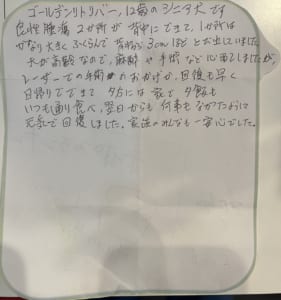 ゴールデンリトリバー、12歳のシニア犬です
良性腫瘍 2か所が 背中にできて、1か所は
かなり大きく ふくらんで 背中から 3cmほど とび出していました。
犬が高齢なので、麻酔や手術など 心配でしたが、
レーザーでの手術のおかげか、回復も早く
日帰りでできて 夕方には 家で 夕飯も
いつも通り食べ、翌日からも 何事もなかったように
元気で回復しました。家族のみんなも一安心でした。